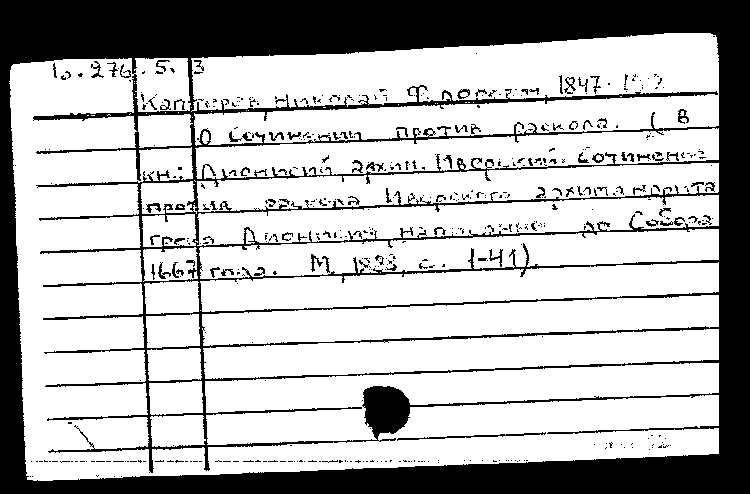 10.276.5.3
Каптерев, Николай Федорович, 1847-
О сочинении против раскола. (В
кн.: Дионисий, архим. Иверский. Сочинение
против раскола Иверского архимандрита
грека Дионисия, написанное до Собора
1667 года. М., 1888, с. 1-41).